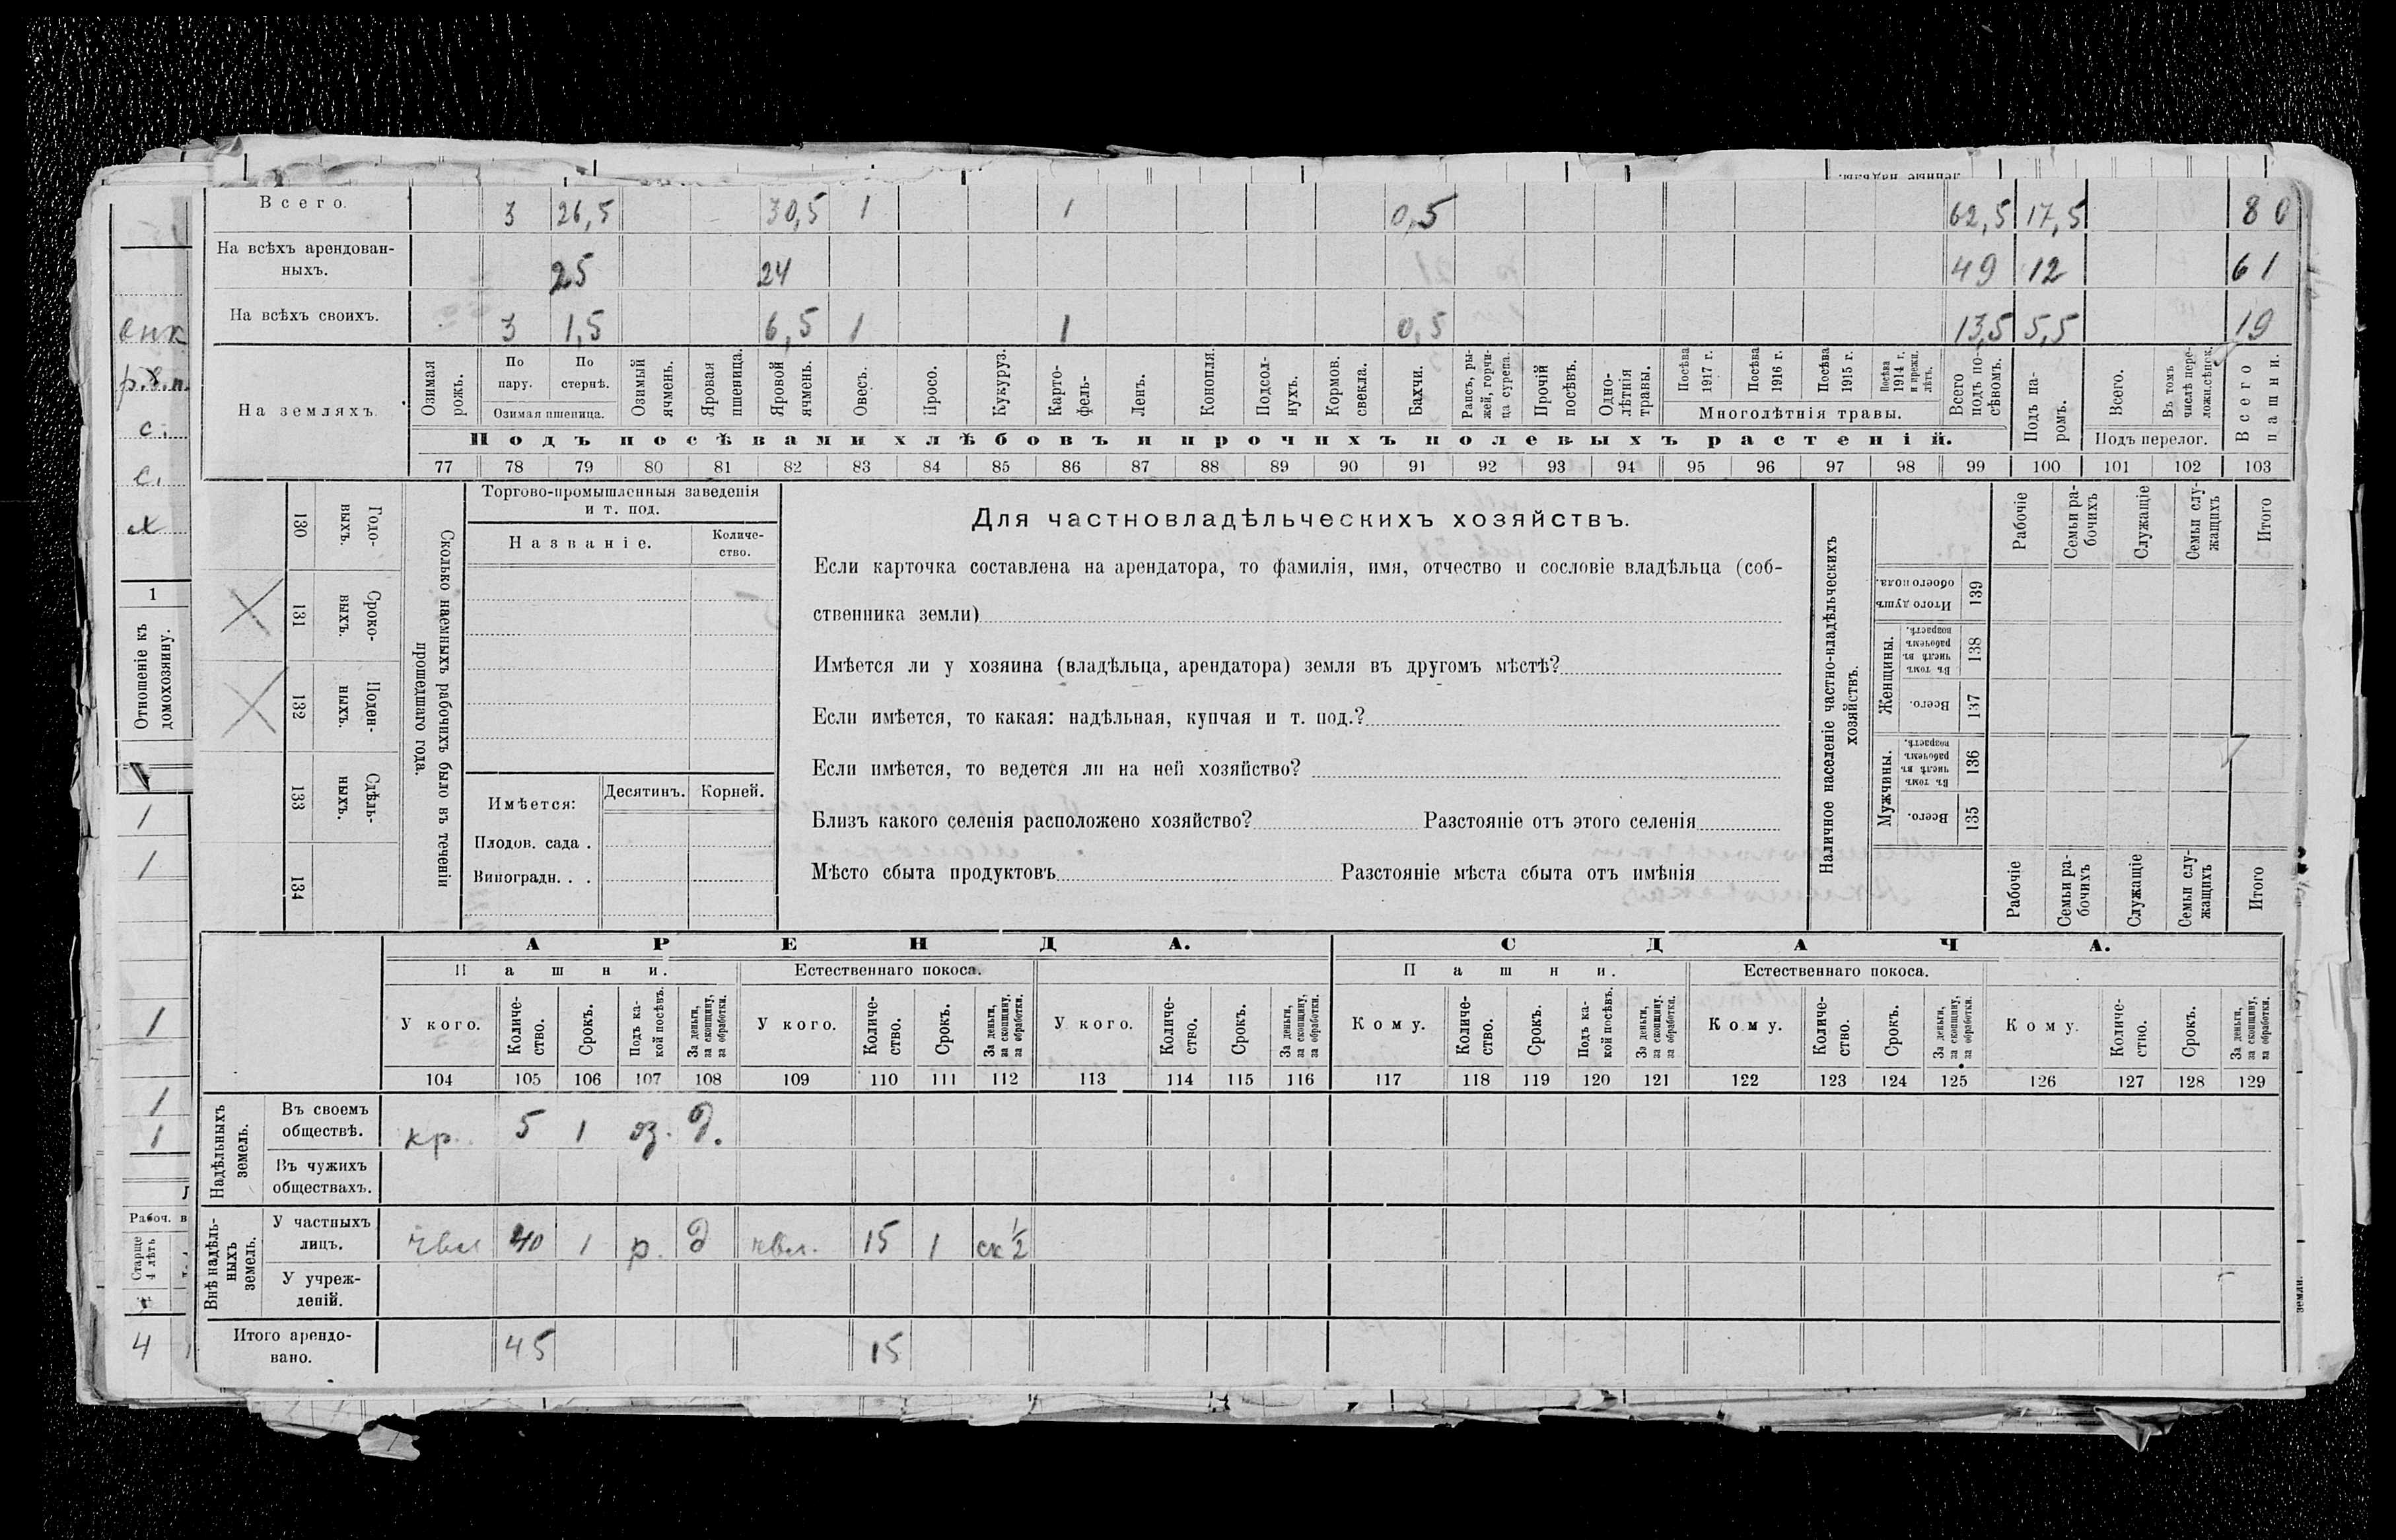 Всего. 3 26,5 30,5 1 1 0,5 62,5 17,5 80
На всѣхъ арендован-
ныхъ. 25 24 49 12 61
На всѣхъ своихъ. 3 1,5 6,5 1 1 0,5 13,5 5,5 19
На земляхъ.
Озимая рожь.
По пару.
По стернѣ.
Озимая пшеница.
Озимый ячмень.
Яровая пшеница.
Яровой ячмень.
Овесъ.
Просо.
Кукуруз.
Карто-
фель.
Ленъ.
Конопля.
Подсол-
нухъ.
Кормов.
свекла.
Бахчи.
Рапсъ, ры-
жей, горчи-
ца сурепа.
Прочій
посѣвъ.
Одно-
лѣтнія
травы.
Посѣва
1917 г.
Посѣва
1916 г.
Посѣва
1915 г.
Посѣва
1914 г.
и прежн.
лѣтъ.
Многолѣтнія травы.
Всего
подъ по-
сѣвомъ.
Подъ па-
ромъ.
Всего.
Въ томъ
числѣ пере-
ложн. сѣнок.
Подъ перелог.
Всего
пашни.
Подъ посѣвами хлѣбовъ и прочихъ полевыхъ растеній.
77 78 79 80 81 82 83 84 85 86 87 88 89 90 91 92 93 94 95 96 97 98 99 100 101 102 103
130 Годо-
выхъ.
131 Сроко-
выхъ.
132 Поден-
ныхъ.
133 Сдѣль-
ныхъ.
134
Сколько наемныхъ рабочихъ было въ теченіи
прошедшаго года.
Торгово-промышленныя заведенія
и т. под.
Названіе.
Количе-
ство.
Имѣется:
Десятинъ. Корней.
Плодов. сада .
Виноградн. . .
Для частновладѣльческихъ хозяйствъ.
Если карточка составлена на арендатора, то фамилія, имя, отчество и сословіе владѣльца (соб-
ственника земли)
Имѣется ли у хозяина (владѣльца, арендатора) земля въ другомъ мѣстѣ?
Если имѣется, то какая: надѣльная, купчая и т. под.?
Если имѣется, то ведется ли на ней хозяйство?
Близъ какого селенія расположено хозяйство? Разстояніе отъ этого селенія
Мѣсто сбыта продуктовъ Разстояніе мѣста сбыта отъ имѣнія
Наличное населеніе частно-владѣльческихъ
хозяйствъ.
Рабочіе
Семьи ра-
бочихъ
Служащіе
Семьи слу-
жащихъ
Итого
Итого душъ
обоего пола.
139
Женщины.
Въ томъ
числѣ въ
рабочемъ
возрастѣ.
138
Всего.
137
Мужчины.
Въ томъ
числѣ въ
рабочемъ
возрастѣ.
136
Всего.
135
Рабочіе
Семьи ра-
бочихъ
Служащіе
Семьи слу-
жащихъ
Итого
АРЕНДА. СДАЧА.
Пашни. Естественнаго покоса. Пашни. Естественнаго покоса.
У кого.
Количе-
ство.
Срокъ.
Подъ ка-
кой посѣвъ.
За деньги,
за скопщину,
за обработки.
У кого.
Количе-
ство.
Срокъ.
За деньги,
за скопщину,
за обработки.
У кого.
Количе-
ство.
Срокъ.
За деньги,
за скопщину,
за обработки.
Кому.
Количе-
ство.
Срокъ.
Подъ ка-
кой посѣвъ.
За деньги,
за скопщину,
за обработки.
Кому.
Количе-
ство.
Срокъ.
За деньги,
за скопщину,
за обработки.
Кому.
Количе-
ство.
Срокъ.
За деньги,
за скопщину,
за обработки.
104 105 106 107 108 109 110 111 112 113 114 115 116 117 118 119 120 121 122 123 124 125 126 127 128 129
Надѣльныхъ
земель.
Въ своемъ
обществѣ. кр. 5 1 оз. д.
Въ чужихъ
обществахъ.
Внѣ надѣль-
ныхъ
земель.
У частныхъ
лицъ. чвл 40 1 р. д чвл. 15 1 ск ½
У учреж-
деній.
Итого арендо-
вано. 45 15
енк
р.д.п.
с.
с.
х
1
Отношеніе къ
домохозяину.
1
1
1
1
1
Рабоч. в
Старше
4 лѣтъ
4
земли.